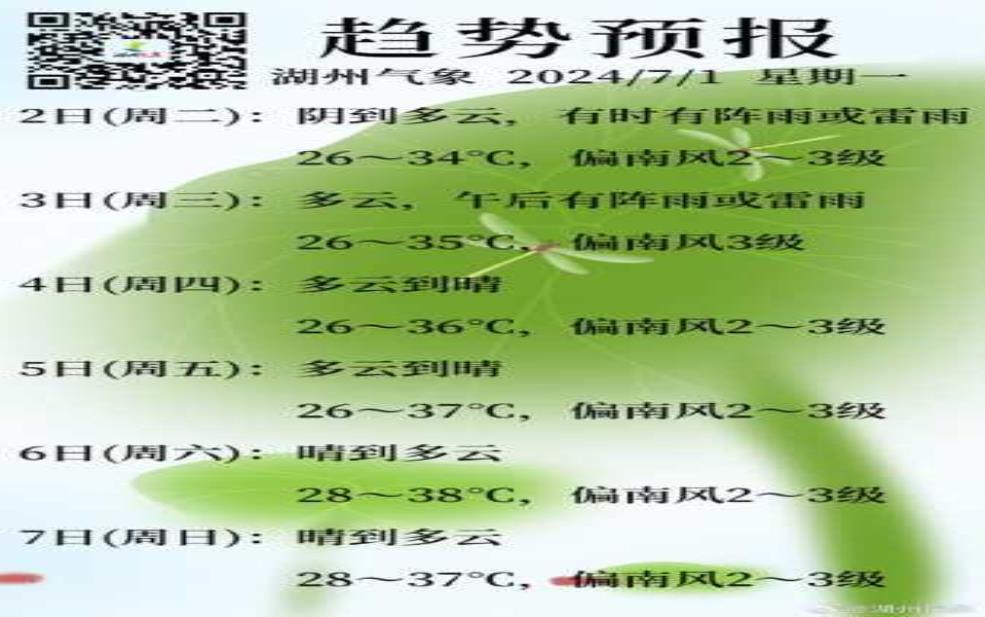 趋势预报
湖州气象 2024/7/1 星期一
2日(周二)：阴到多云，有时有阵雨或雷雨
26～34℃，偏南风2～3级
3日(周三)：多云，午后有阵雨或雷雨
26～35℃，偏南风3级
4日(周四)：多云到晴
26～36℃，偏南风2～3级
5日(周五)：多云到晴
26～37℃，偏南风2～3级
6日(周六)：晴到多云
28～38℃，偏南风2～3级
7日(周日)：晴到多云
28～37℃，偏南风2～3级
@湖州